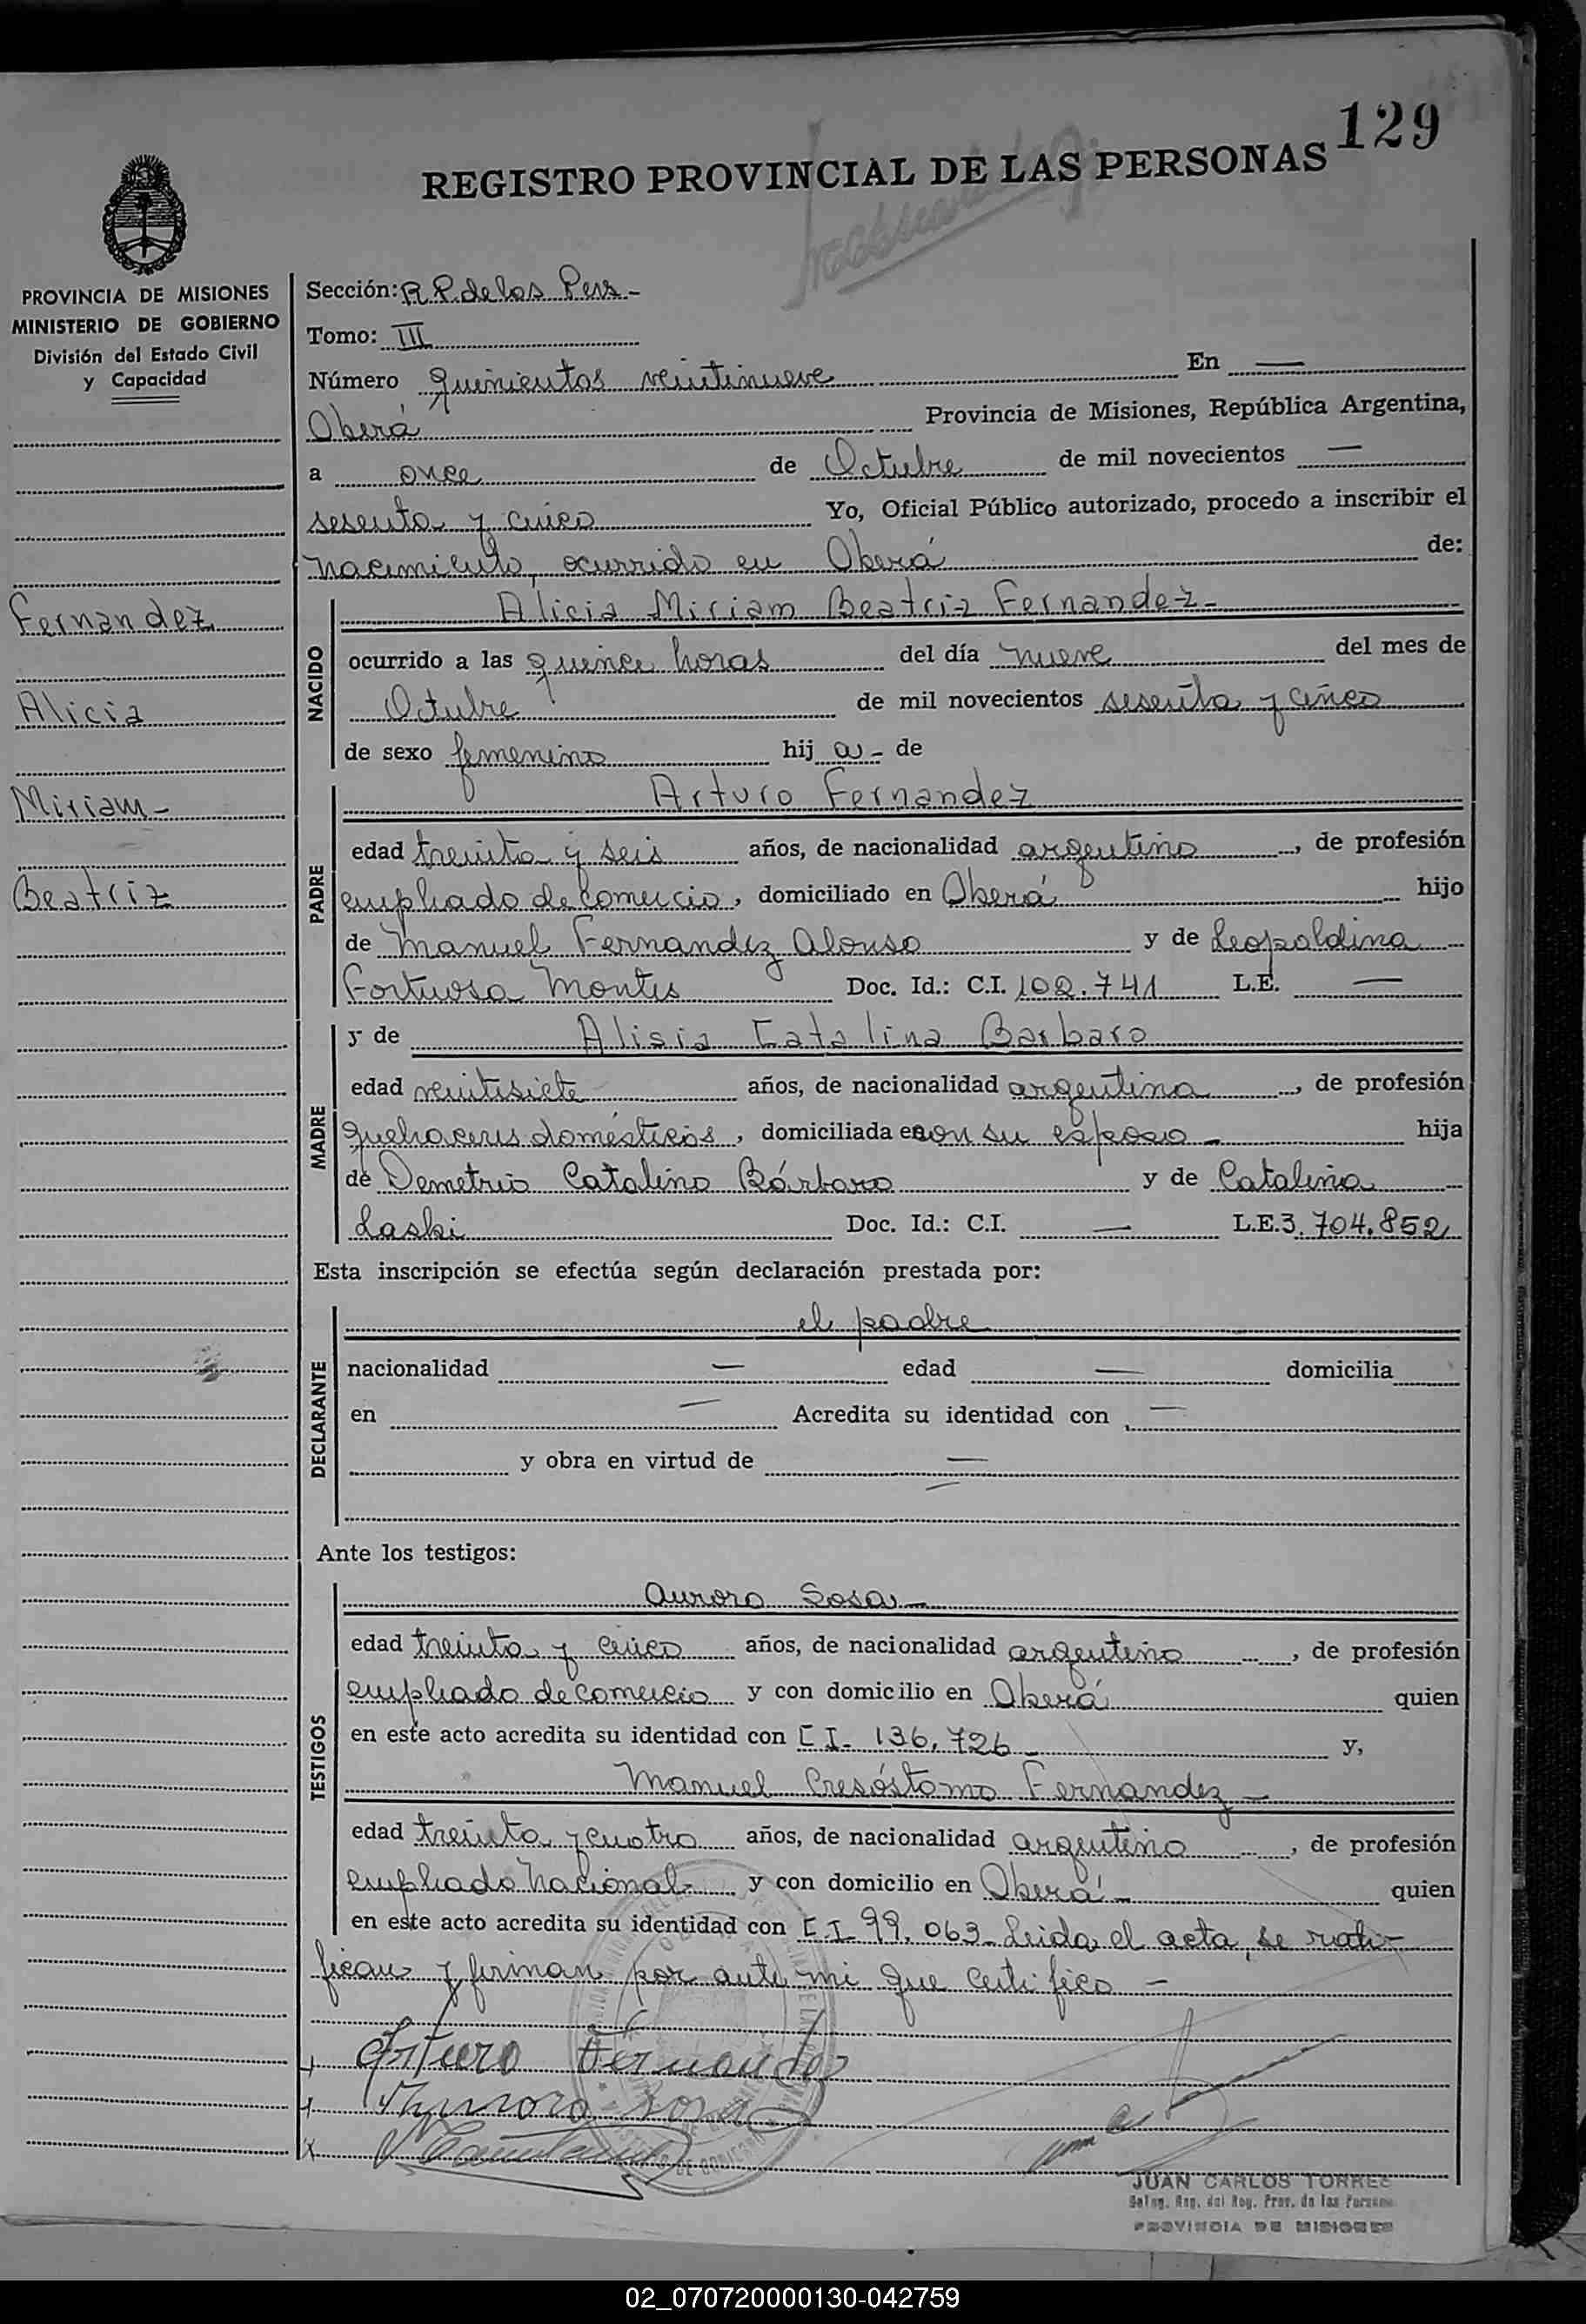 129
REGISTRO PROVINCIAL DE LAS PERSONAS
PROVINCIA DE MISIONES
MINISTERIO DE GOBIERNO
División del Estado Civil
y Capacidad
Fernandez
Alicia
Miriam -
Beatriz
Sección: R.P. de los Pers -
Tomo: III
Número quinientos veintinueve En —
Oberá Provincia de Misiones, República Argentina,
a once de Octubre de mil novecientos —
sesenta y cinco Yo, Oficial Público autorizado, procedo a inscribir el
nacimiento, ocurrido en Oberá de:
NACIDO
Alicia Miriam Beatriz Fernandez -
ocurrido a las quince horas del día nueve del mes de
Octubre de mil novecientos sesenta y cinco
de sexo femenino hij a - de
PADRE
Arturo Fernandez
edad treinta y seis años, de nacionalidad argentino, de profesión
empleado de Comercio, domiciliado en Oberá hijo
de Manuel Fernandez Alonso y de Leopoldina
Fortuosa Montes Doc. Id.: C.I. 102.741 L.E. —
MADRE
y de Alisia Catalina Barbaro
edad veintisiete años, de nacionalidad argentina, de profesión
quehaceres domésticos, domiciliada en con su esposo - hija
de Demetrio Catalino Bárbaro y de Catalina
Laski Doc. Id.: C.I. — L.E. 3.704.852
Esta inscripción se efectúa según declaración prestada por:
DECLARANTE
el padre
nacionalidad — edad — domicilia
en — Acredita su identidad con —
y obra en virtud de —
Ante los testigos:
TESTIGOS
Aurora Sosa -
edad treinta y cinco años, de nacionalidad argentino, de profesión
empleado de comercio y con domicilio en Oberá quien
en este acto acredita su identidad con C I - 136.726 - y,
Manuel Cresóstomo Fernandez -
edad treinta y cuatro años, de nacionalidad argentino, de profesión
empleado Nacional - y con domicilio en Oberá - quien
en este acto acredita su identidad con C I 99.063 - Leida el acta, se rati-
fican y firman por ante mi que certifico -
Arturo Fernandez
JUAN CARLOS TORRES
PROVINCIA DE MISIONES
02_070720000130-042759